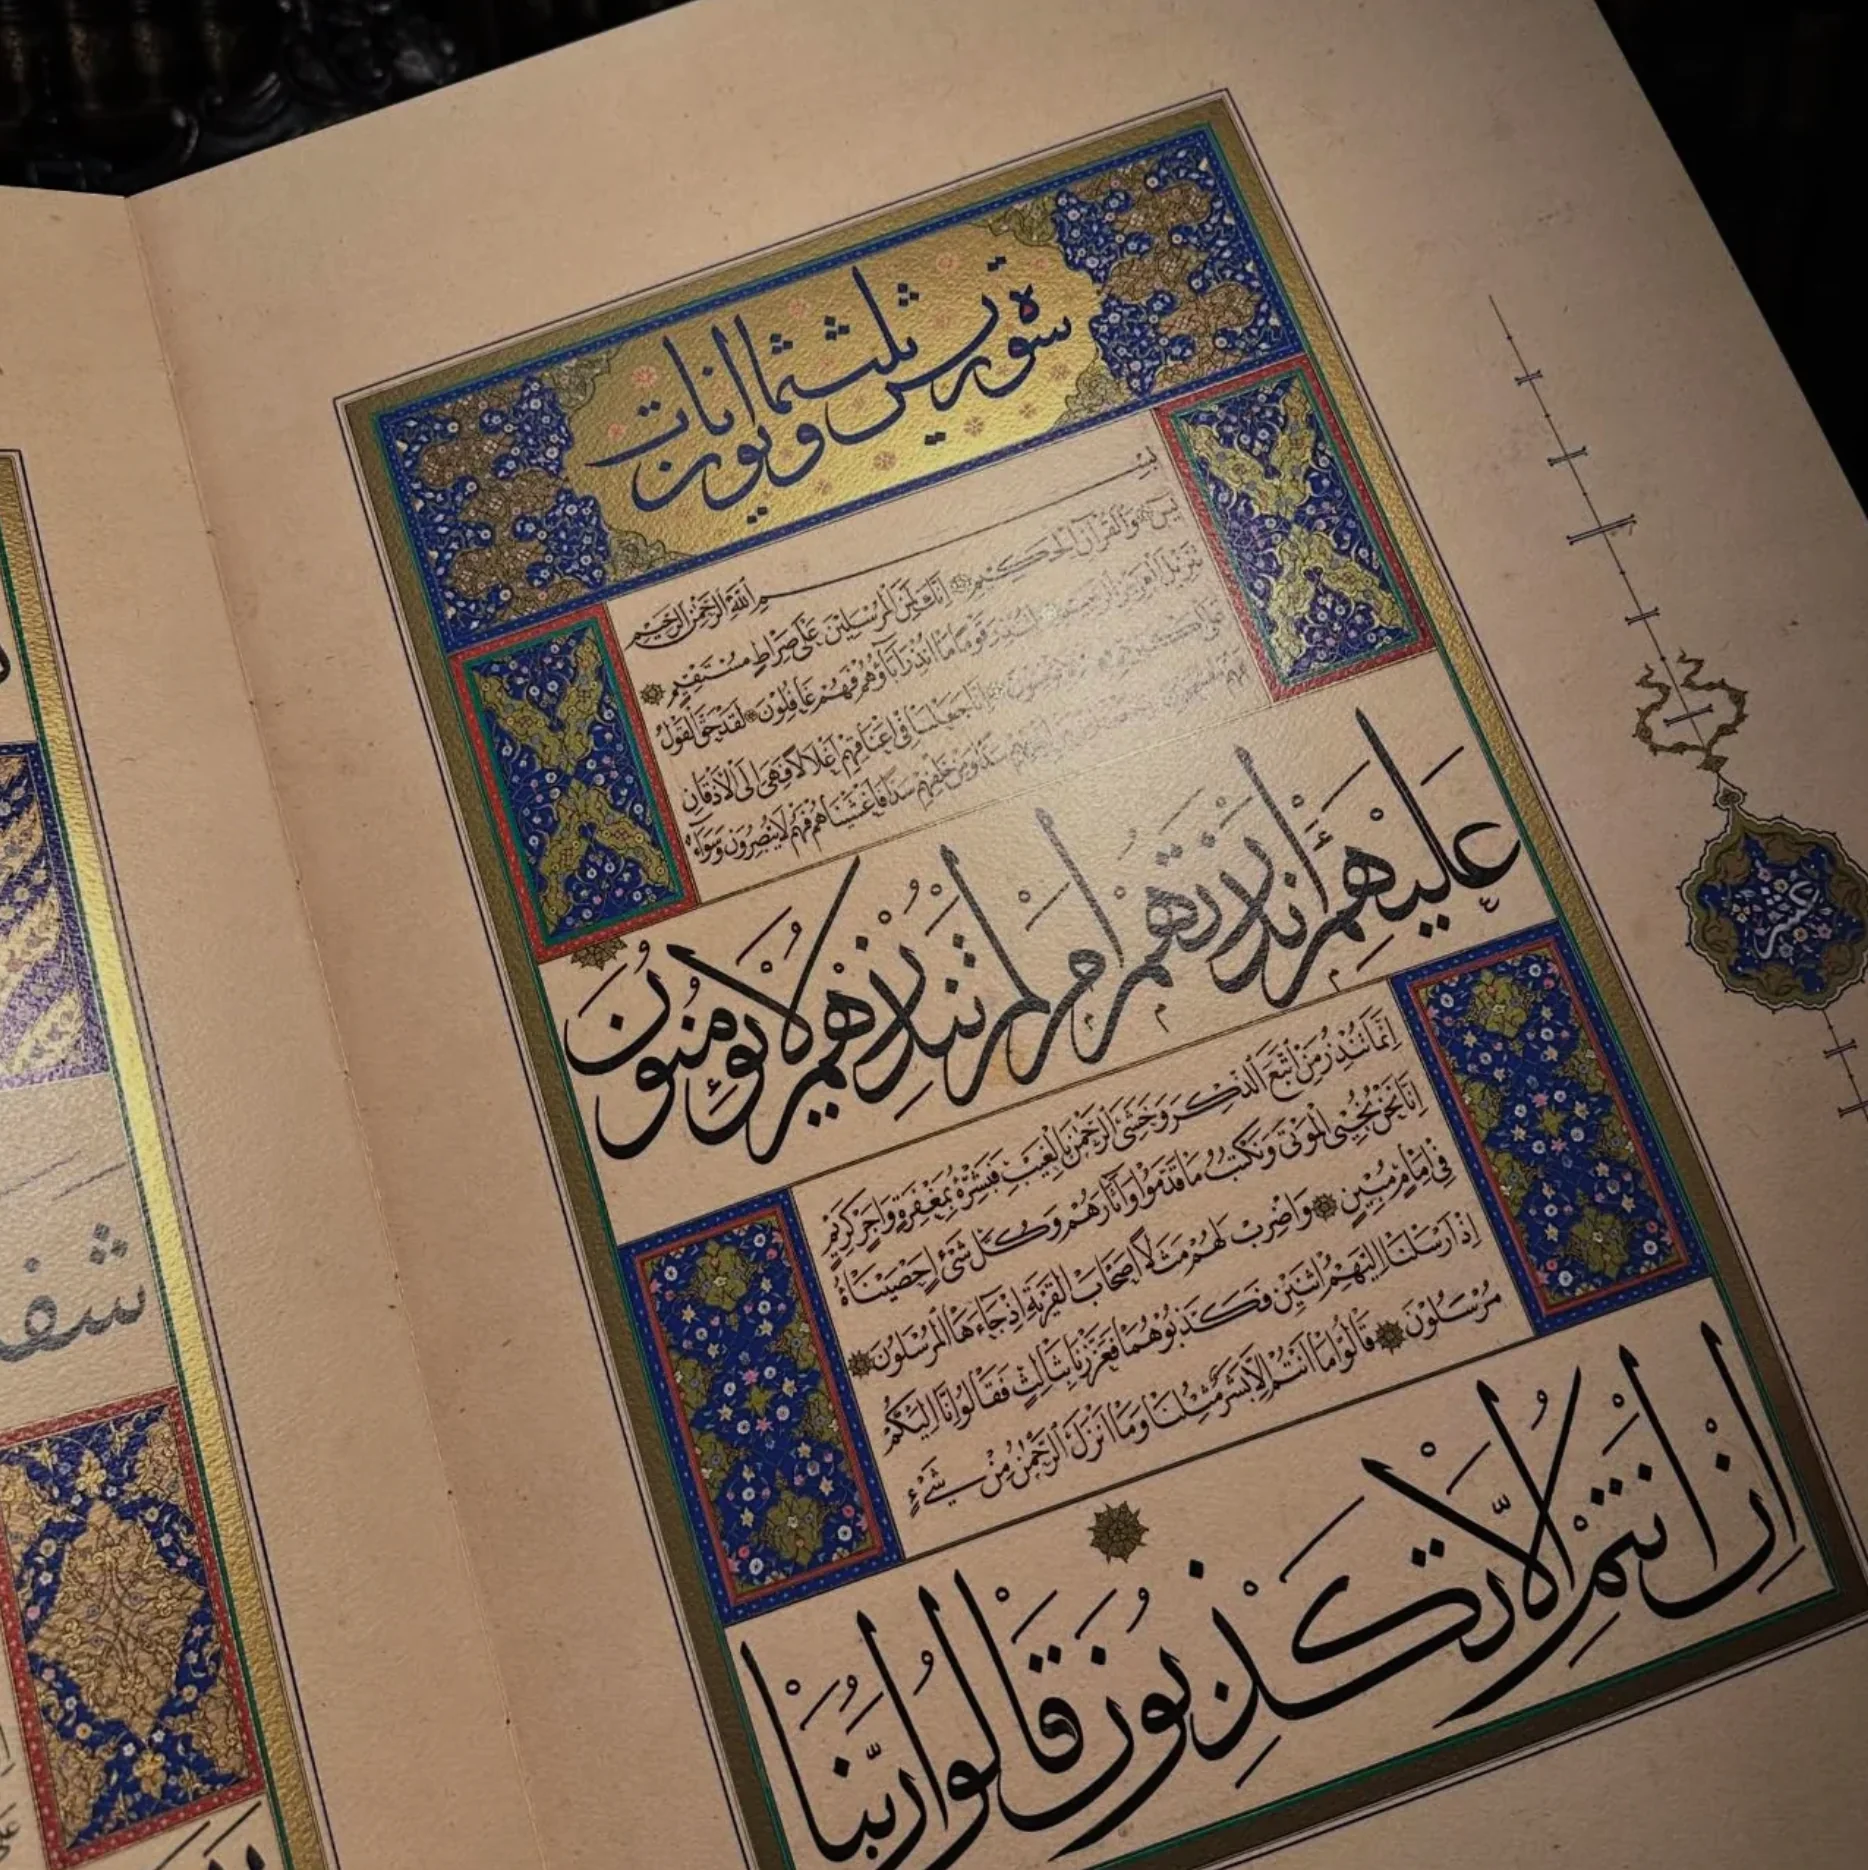 سورة يس ثلث و ثمانون ايات
بسم الله الرحمن الرحيم
يس وَالْقُرْآنِ الْحَكِيمِ اِنَّكَ لَمِنَ الْمُرْسَلِينَ عَلَى صِرَاطٍ مُسْتَقِيمٍ
تَنْزِيلَ الْعَزِيزِ الرَّحِيمِ لِتُنْذِرَ قَوْمًا مَا اُنْذِرَ آبَاؤُهُمْ فَهُمْ غَافِلُونَ لَقَدْ حَقَّ الْقَوْلُ
عَلَى اَكْثَرِهِمْ فَهُمْ لَا يُؤْمِنُونَ اِنَّا جَعَلْنَا فِي اَعْنَاقِهِمْ اَغْلَالًا فَهِيَ اِلَى الْاَذْقَانِ
فَهُمْ مُقْمَحُونَ وَجَعَلْنَا مِنْ بَيْنِ اَيْدِيهِمْ سَدًّا وَمِنْ خَلْفِهِمْ سَدًّا فَاَغْشَيْنَاهُمْ فَهُمْ لَا يُبْصِرُونَ وَسَوَاءٌ
عَلَيْهِمْ ءَاَنْذَرْتَهُمْ اَمْ لَمْ تُنْذِرْهُمْ لَا يُؤْمِنُونَ
اِنَّمَا تُنْذِرُ مَنِ اتَّبَعَ الذِّكْرَ وَخَشِيَ الرَّحْمٰنَ بِالْغَيْبِ فَبَشِّرْهُ بِمَغْفِرَةٍ وَاَجْرٍ كَرِيمٍ
اِنَّا نَحْنُ نُحْيِي الْمَوْتَى وَنَكْتُبُ مَا قَدَّمُوا وَآثَارَهُمْ وَكُلَّ شَيْءٍ اَحْصَيْنَاهُ
فِي اِمَامٍ مُبِينٍ وَاضْرِبْ لَهُمْ مَثَلًا اَصْحَابَ الْقَرْيَةِ اِذْ جَاءَهَا الْمُرْسَلُونَ
اِذْ اَرْسَلْنَا اِلَيْهِمُ اثْنَيْنِ فَكَذَّبُوهُمَا فَعَزَّزْنَا بِثَالِثٍ فَقَالُوا اِنَّا اِلَيْكُمْ
مُرْسَلُونَ قَالُوا مَا اَنْتُمْ اِلَّا بَشَرٌ مِثْلُنَا وَمَا اَنْزَلَ الرَّحْمٰنُ مِنْ شَيْءٍ
اِنْ اَنْتُمْ اِلَّا تَكْذِبُونَ قَالُوا رَبُّنَا
عشر